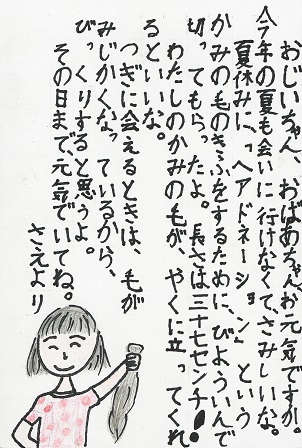 おじいちゃん　おばあちゃん、お元気ですか。
今年の夏も会いに行けなくて、さみしいな。
夏休みに、「ヘアドネーション」という
かみの毛のきふをするために、びよういんで
切ってもらったよ。長さは三十七センチ！
わたしのかみの毛が、やくに立ってくれ
るといいな。
つぎに会えるときは、毛が
みじかくなっているから、
びっくりすると思うよ。
その日まで元気でいてね。
さえより